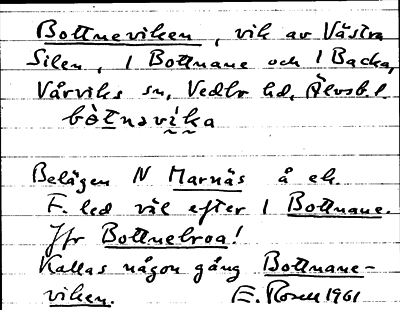 Bottneviken, vik av Västra
Silen, 1 Bottnane och 1 Backa,
Vårviks sn, Vedbo hd, Älvsb. l.
bòtnəvi̇̀ka
Belägen N Marnäs å ek.
F. led väl efter 1 Bottnane.
Jfr Bottnebroa!
Kallas någon gång Bottnane-
viken. E. Rosell 1961